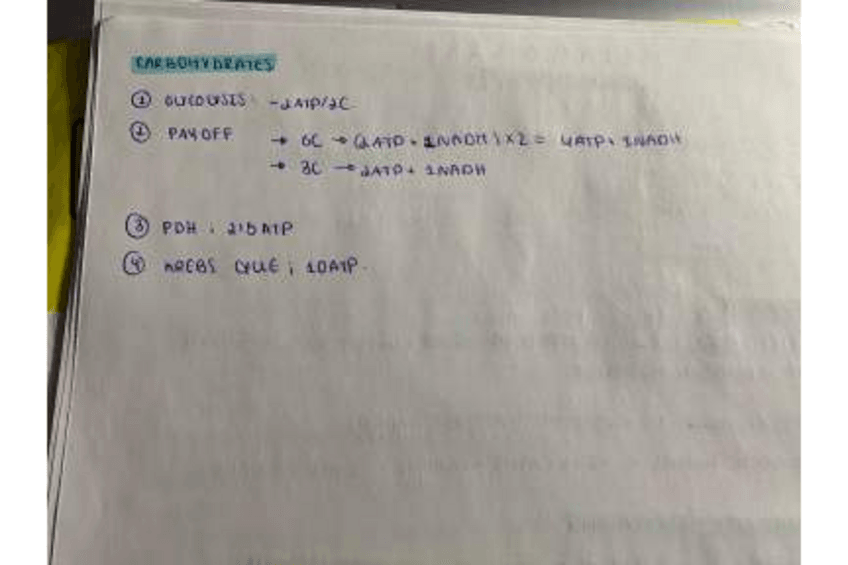 CARBOHYDRATES
① GLYCOLYSIS: -2ATP/2C
② PAYOFF → 6C → (2ATP + 1NADH) x2 = 4ATP + 2NADH
→ 3C → 2ATP + 1NADH
③ PDH : 2.5 ATP
④ KREBS CYCLE ; 10ATP.